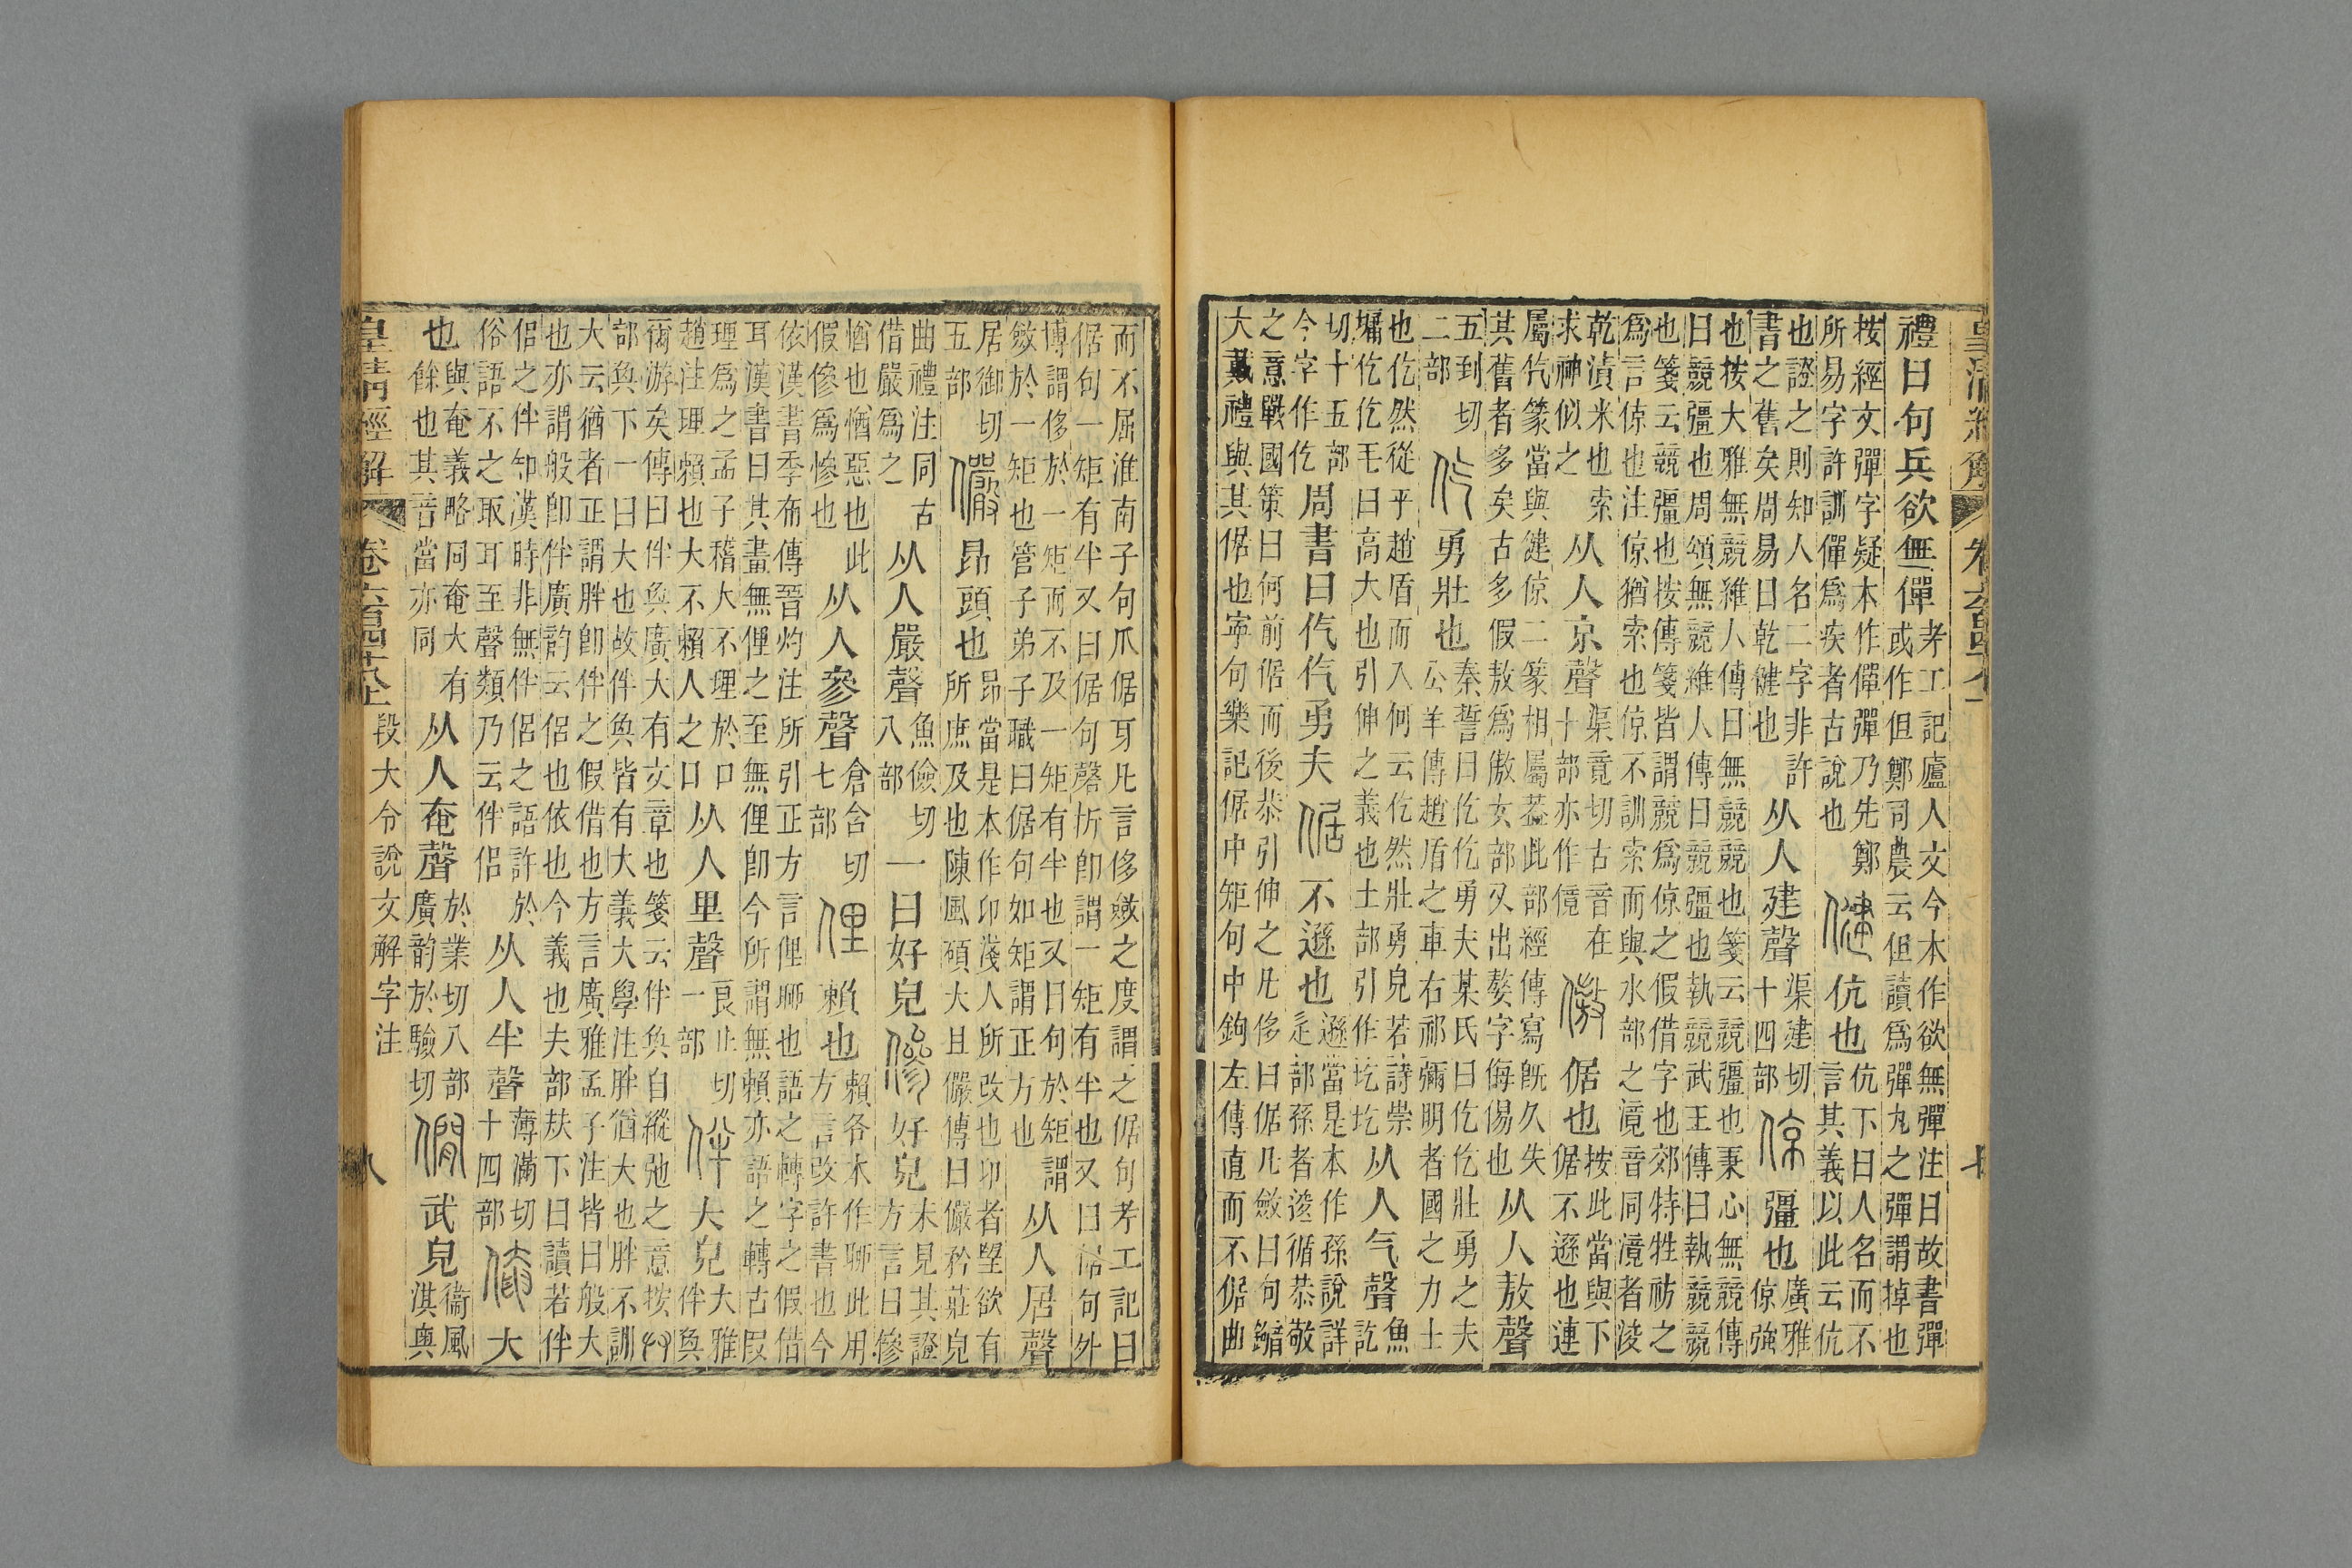 皇淸經解 卷六百四十八上
禮曰句兵欲無僤考工記廬人文今本作欲無彈注曰故書彈或作但鄭司農云但讀爲彈丸之彈謂掉也
按經文彈字疑本作僤彈乃先鄭所易字許訓僤爲疾者古說也健伉也伉下曰人名而不言其義以此云伉
也證之則知人名二字非許書之舊矣周易曰乾健也从人建聲渠建切十四部倞彊也廣雅倞強
也按大雅無競維人傳曰無競競也箋云競彊也秉心無競傳曰競彊也周頌無競維人傳曰競彊也執競武王傳曰執競競
也箋云競彊也按傳箋皆謂競爲倞之假借字也郊特牲祊之爲言倞也注倞猶索也倞不訓索而與水部之滰音同滰者浚
乾漬米也索求神似之从人京聲渠竟切古音在十部亦作傹傲倨也按此當與下倨不遜也連
屬㐹篆當與健倞二篆相屬葢此部經傳寫旣久失其舊者多矣古多假敖爲傲女部又出嫯字侮傷也从人敖聲
五到切二部㐹勇壯也秦誓曰仡仡勇夫某氏曰仡仡壯勇之夫公羊傳趙盾之車右祁彌明者國之力士
也仡然從乎趙盾而入何云仡然壯勇皃若詩崇墉仡仡毛曰高大也引伸之義也土部引作圪圪从人气聲魚訖
切十五部今字作仡周書曰㐹㐹勇夫倨不遜也遜當是本作孫說詳辵部孫者逡循恭敬
之意戰國策曰何前倨而後恭引伸之凡侈曰倨凡斂曰句大戴禮與其倨也寧句樂記倨中矩句中鉤左傳直而不倨曲
而不屈淮南子句爪倨牙凡言侈斂之度謂之倨句考工記曰倨句一矩有半又曰倨句磬折卽謂一矩有半也又曰倨句外
博謂侈於一矩而不及一矩有半也又曰句於矩謂斂於一矩也管子弟子職曰倨句如矩謂正方也从人居聲
居御切五部儼昂頭也昂當是本作卬淺人所改也卬者望欲有所庶及也陳風碩大且儼傳曰儼矜莊皃
曲禮注同古借嚴爲之从人嚴聲魚儉切八部一曰好皃傪好皃未見其證方言曰傪
惛也惛惡也此假傪爲慘也从人參聲倉含切七部俚賴也賴各本作聊此用方言改許書也今
依漢書季布傳晉灼注所引正方言俚聊也語之轉字之假借耳漢書曰其畫無俚之至無俚卽今所謂無賴亦語之轉古叚
理爲之孟子稽大不理於口趙注理賴也大不賴人之口从人里聲良止切一部伴大皃大雅伴奐
爾游矣傳曰伴奐廣大有文章也箋云伴奐自縱弛之意按𠬞部奐下一曰大也故伴奐皆有大義大學注胖猶大也胖不訓
大云猶者正謂胖卽伴之假借也方言廣雅孟子注皆曰般大也亦謂般卽伴廣韵云侶也依也今義也夫部㚘下曰讀若伴
侶之伴知漢時非無伴侶之語許於俗語不之取耳至聲類乃云伴侶从人半聲薄滿切十四部俺大
也與奄義略同奄大有餘也其音當亦同从人奄聲於業切八部廣韵於驗切僩武皃衞風淇奥
皇淸經解 卷六百四十八上 段大令說文解字注 八